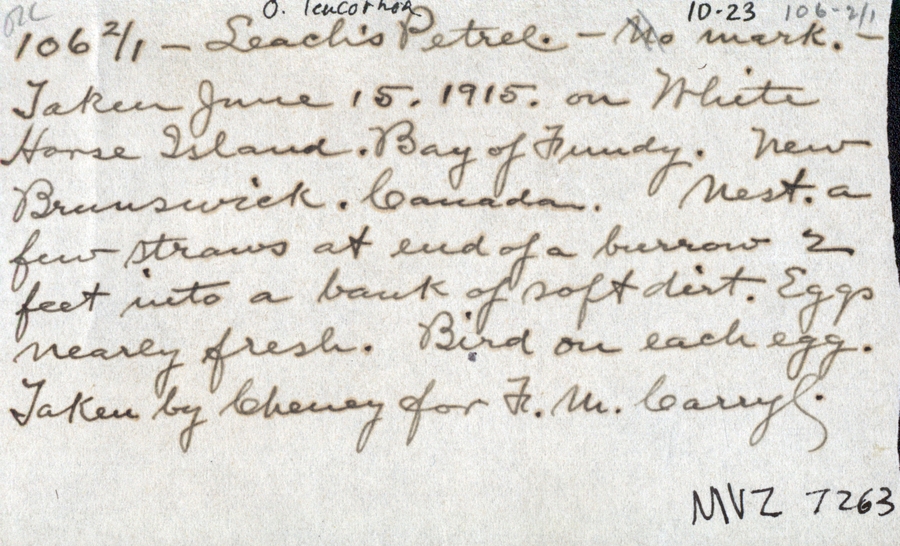 O. leucorhoa 10-23 106-2/1
106 2/1 - Leach's Petrel. - No mark. -
Taken June 15. 1915. on White
Horse Island. Bay of Fundy. New
Brunswick. Canada. Nest. a
few straws at end of a burrow 2
feet into a bank of soft dirt. Eggs
nearly fresh. Bird on each egg.
Taken by Cheney for F. M. Carryl.
MVZ 7263